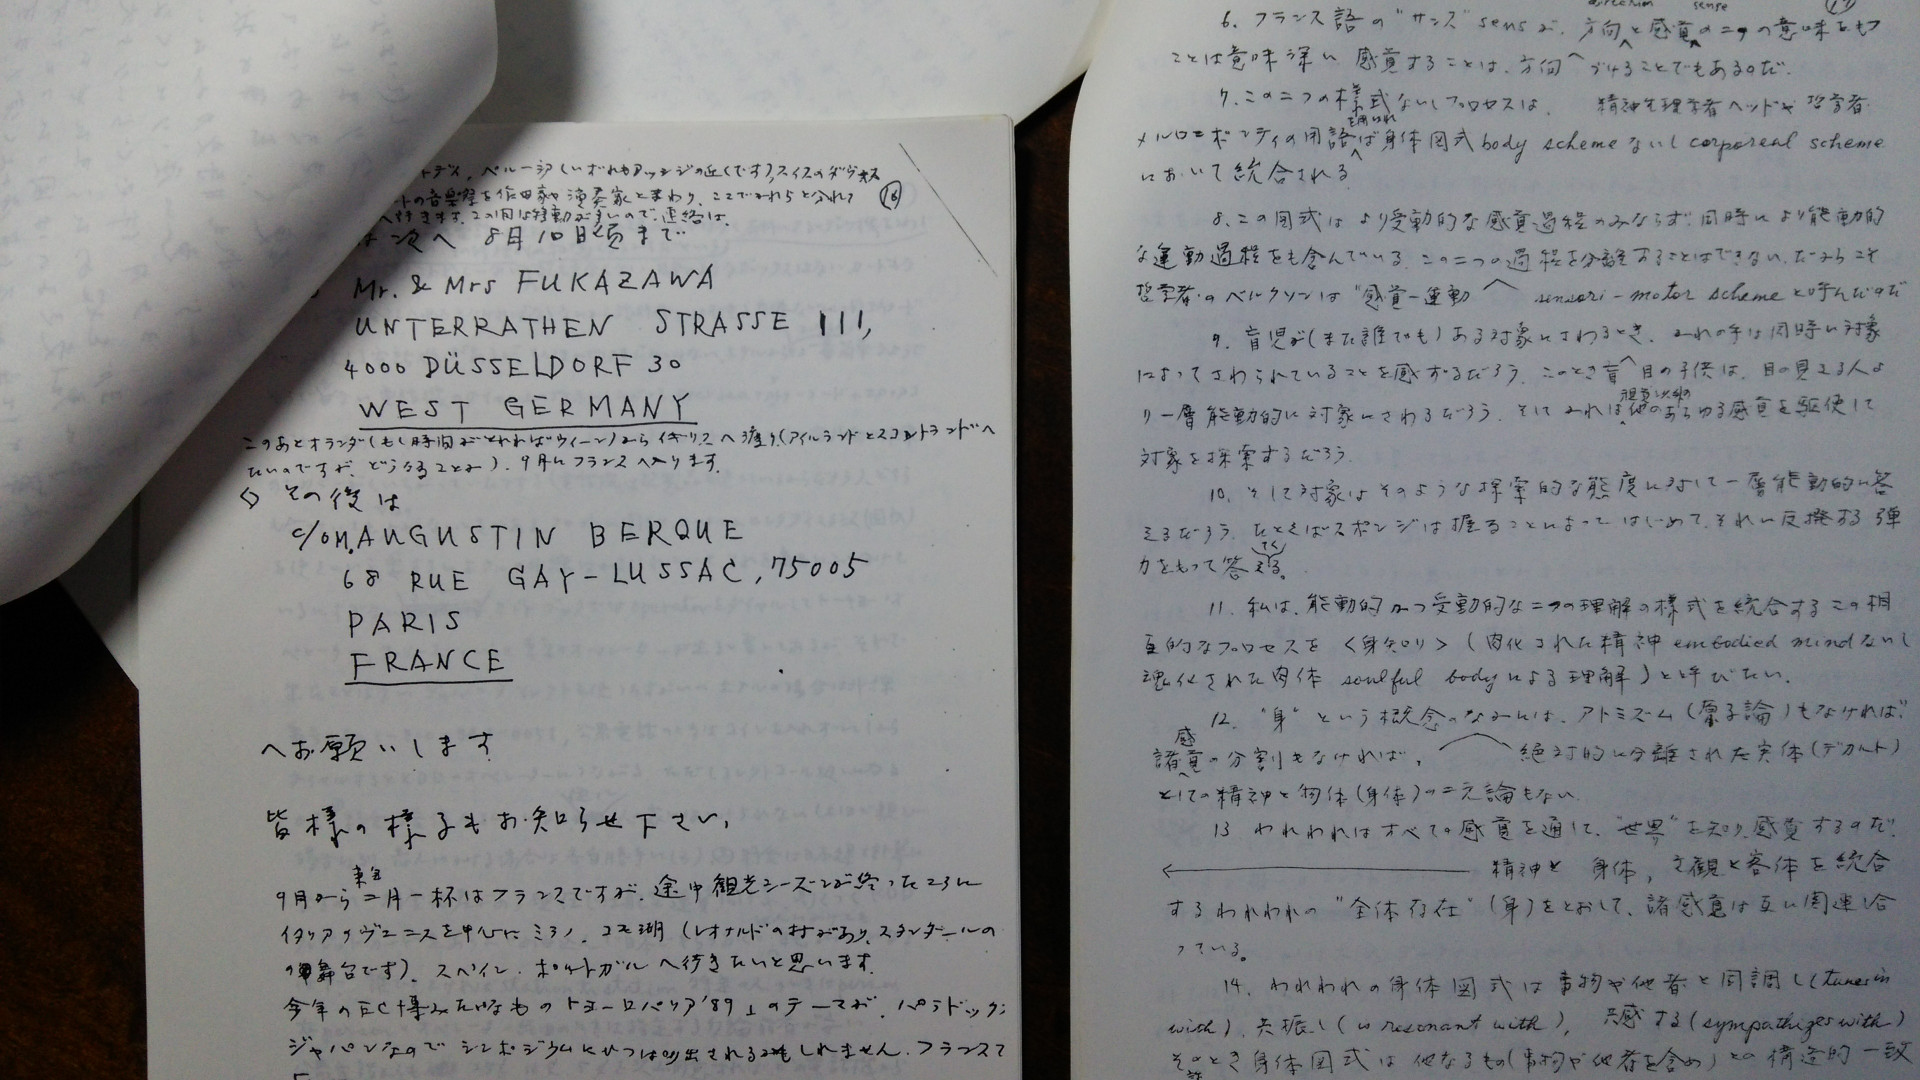 トディ, ペルージア(いずれもアッシジの近くです), スイスのダヴォス
トの音楽祭を作曲家や演奏家とまわり, ここでかれらと分れて
へ行きます. この間は移動が多いので, 連絡は,
⑯
は次へ 8月10日頃まで
Mr. & Mrs FUKAZAWA
UNTERRATHEN STRASSE 111,
4000 DÜSSELDORF 30
WEST GERMANY
このあとオランダ(もし時間がとれればウィーン)からイギリスへ渡り,(アイルランドとスコットランドへ
たいのですが, どうなることか). 9月にフランスへ入ります.
その後は
c/o M. AUGUSTIN BERQUE
68 RUE GAY-LUSSAC, 75005
PARIS
FRANCE
へお願いします
皆様の様子もお知らせ下さい,
9月から来年二月一杯はフランスですが, 途中観光シーズンが終ったころに
イタリアヴェニスを中心にミラノ, コモ湖(レオナルドの村があり, スタンダールの
舞台です), スペイン, ポルトガルへ行きたいと思います.
今年のEC博みたいなもの「ユーロパリア'89」のテーマが, パラドックス
ジャパンなのでシンポジウムにひっぱり出されるかもしれません. フランスで
direction sense
⑰
6. フランス語の"サンス" sens が, 方向と感覚の二つの意味をもつ
ことは意味深い 感覚することは, 方向づけることでもあるのだ.
7. この二つの様式ないしプロセスは, 精神生理学者ヘッドや哲学者
メルロ=ポンティの用語を用いれば身体図式 body scheme ないし corporeal scheme
において統合される
8. この図式はより受動的な感覚過程のみならず, 同時により能動的
な運動過程をも含んでいる. この二つの過程を分離することはできない. だからこそ
哲学者のベルクソンは"感覚–運動 sensori-motor scheme と呼んだのだ
9. 盲児が(また誰でも)ある対象にさわるとき, かれの手は同時に対象
によってさわられていることを感ずるだろう. このとき盲目の子供は, 目の見える人よ
り一層能動的に対象にさわるだろう. そしてかれは視覚以外の他のあらゆる感覚を駆使して
対象を探索するだろう.
10. そして対象はそのような探索的な態度に対して一層能動的に答
えるだろう. たとえばスポンジは握ることによってはじめて, それに反撥する弾
力をもって答えてくる.
11. 私は, 能動的かつ受動的な二つの理解の様式を統合するこの相
互的なプロセスを〈身知り〉(肉化された精神 embodied mind ないし
魂化された肉体 soulful body による理解)と呼びたい.
12. "身"という概念のなかには, アトミズム(原子論)もなければ,
諸感覚の分割もなければ, 絶対的に分離された実体(デカルト)
としての精神と物体(身体)の二元論もない.
13 われわれはすべての感覚を通して, "世界"を知り, 感覚するのだ.
精神と 身体, 主観と客体を統合
するわれわれの"全体存在"(身)をとおして, 諸感覚は互い関連し合
っている.
14. われわれの身体図式は事物や他者と同調し(tunes in
with), 共振し(is resonant with), 共感する(sympathizes with)
そのとき身体図式は他なるもの(事物や他者を含め)との構造的一致